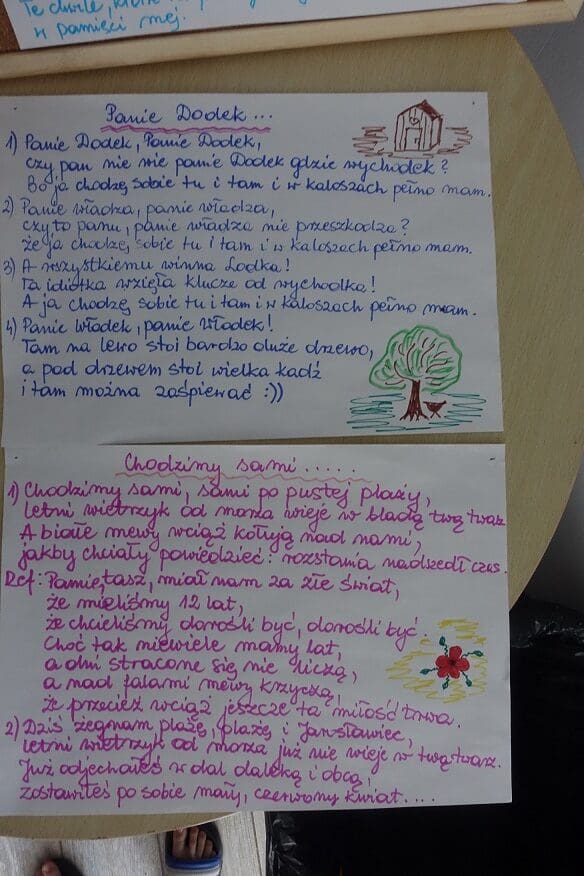 Te chwile, które
w pamięci mej.
Panie Dodek...
1) Panie Dodek, Panie Dodek,
czy pan nie wie panie Dodek gdzie wychodek?
Bo ja chodzę sobie tu i tam i w kaloszach pełno mam.
2) Panie władza, panie władza,
czy to panu, panie władza nie przeszkadza?
że ja chodzę sobie tu i tam i w kaloszach pełno mam.
3) A wszystkiemu winna Lodka!
Ta idiotka wzięła klucze od wychodka!
A ja chodzę sobie tu i tam i w kaloszach pełno mam.
4) Panie Władek, panie Władek!
Tam na lewo stoi bardzo duże drzewo,
a pod drzewem stoi wielka kadź
i tam można zaśpiewać :))
Chodzimy sami.....
1) Chodzimy sami, sami po pustej plaży,
letni wietrzyk od morza wieje w bladą twą twarz
A białe mewy wciąż kołują nad nami,
jakby chciały powiedzieć: rozstania nadszedł czas.
Ref: Pamiętasz, miał nam za złe świat,
że mieliśmy 12 lat,
że chcieliśmy dorośli być, dorośli być.
Choć tak niewiele mamy lat,
a dni stracone się nie liczą,
a nad falami mewy krzyczą,
że przecież wciąż jeszcze ta miłość trwa.
2) Dziś żegnam plażę, plażę i Jarosławiec,
letni wietrzyk od morza już nie wieje w twą twarz.
Już odjechałeś w dal daleką i obcą,
zostawiłeś po sobie mały, czerwony kwiat....